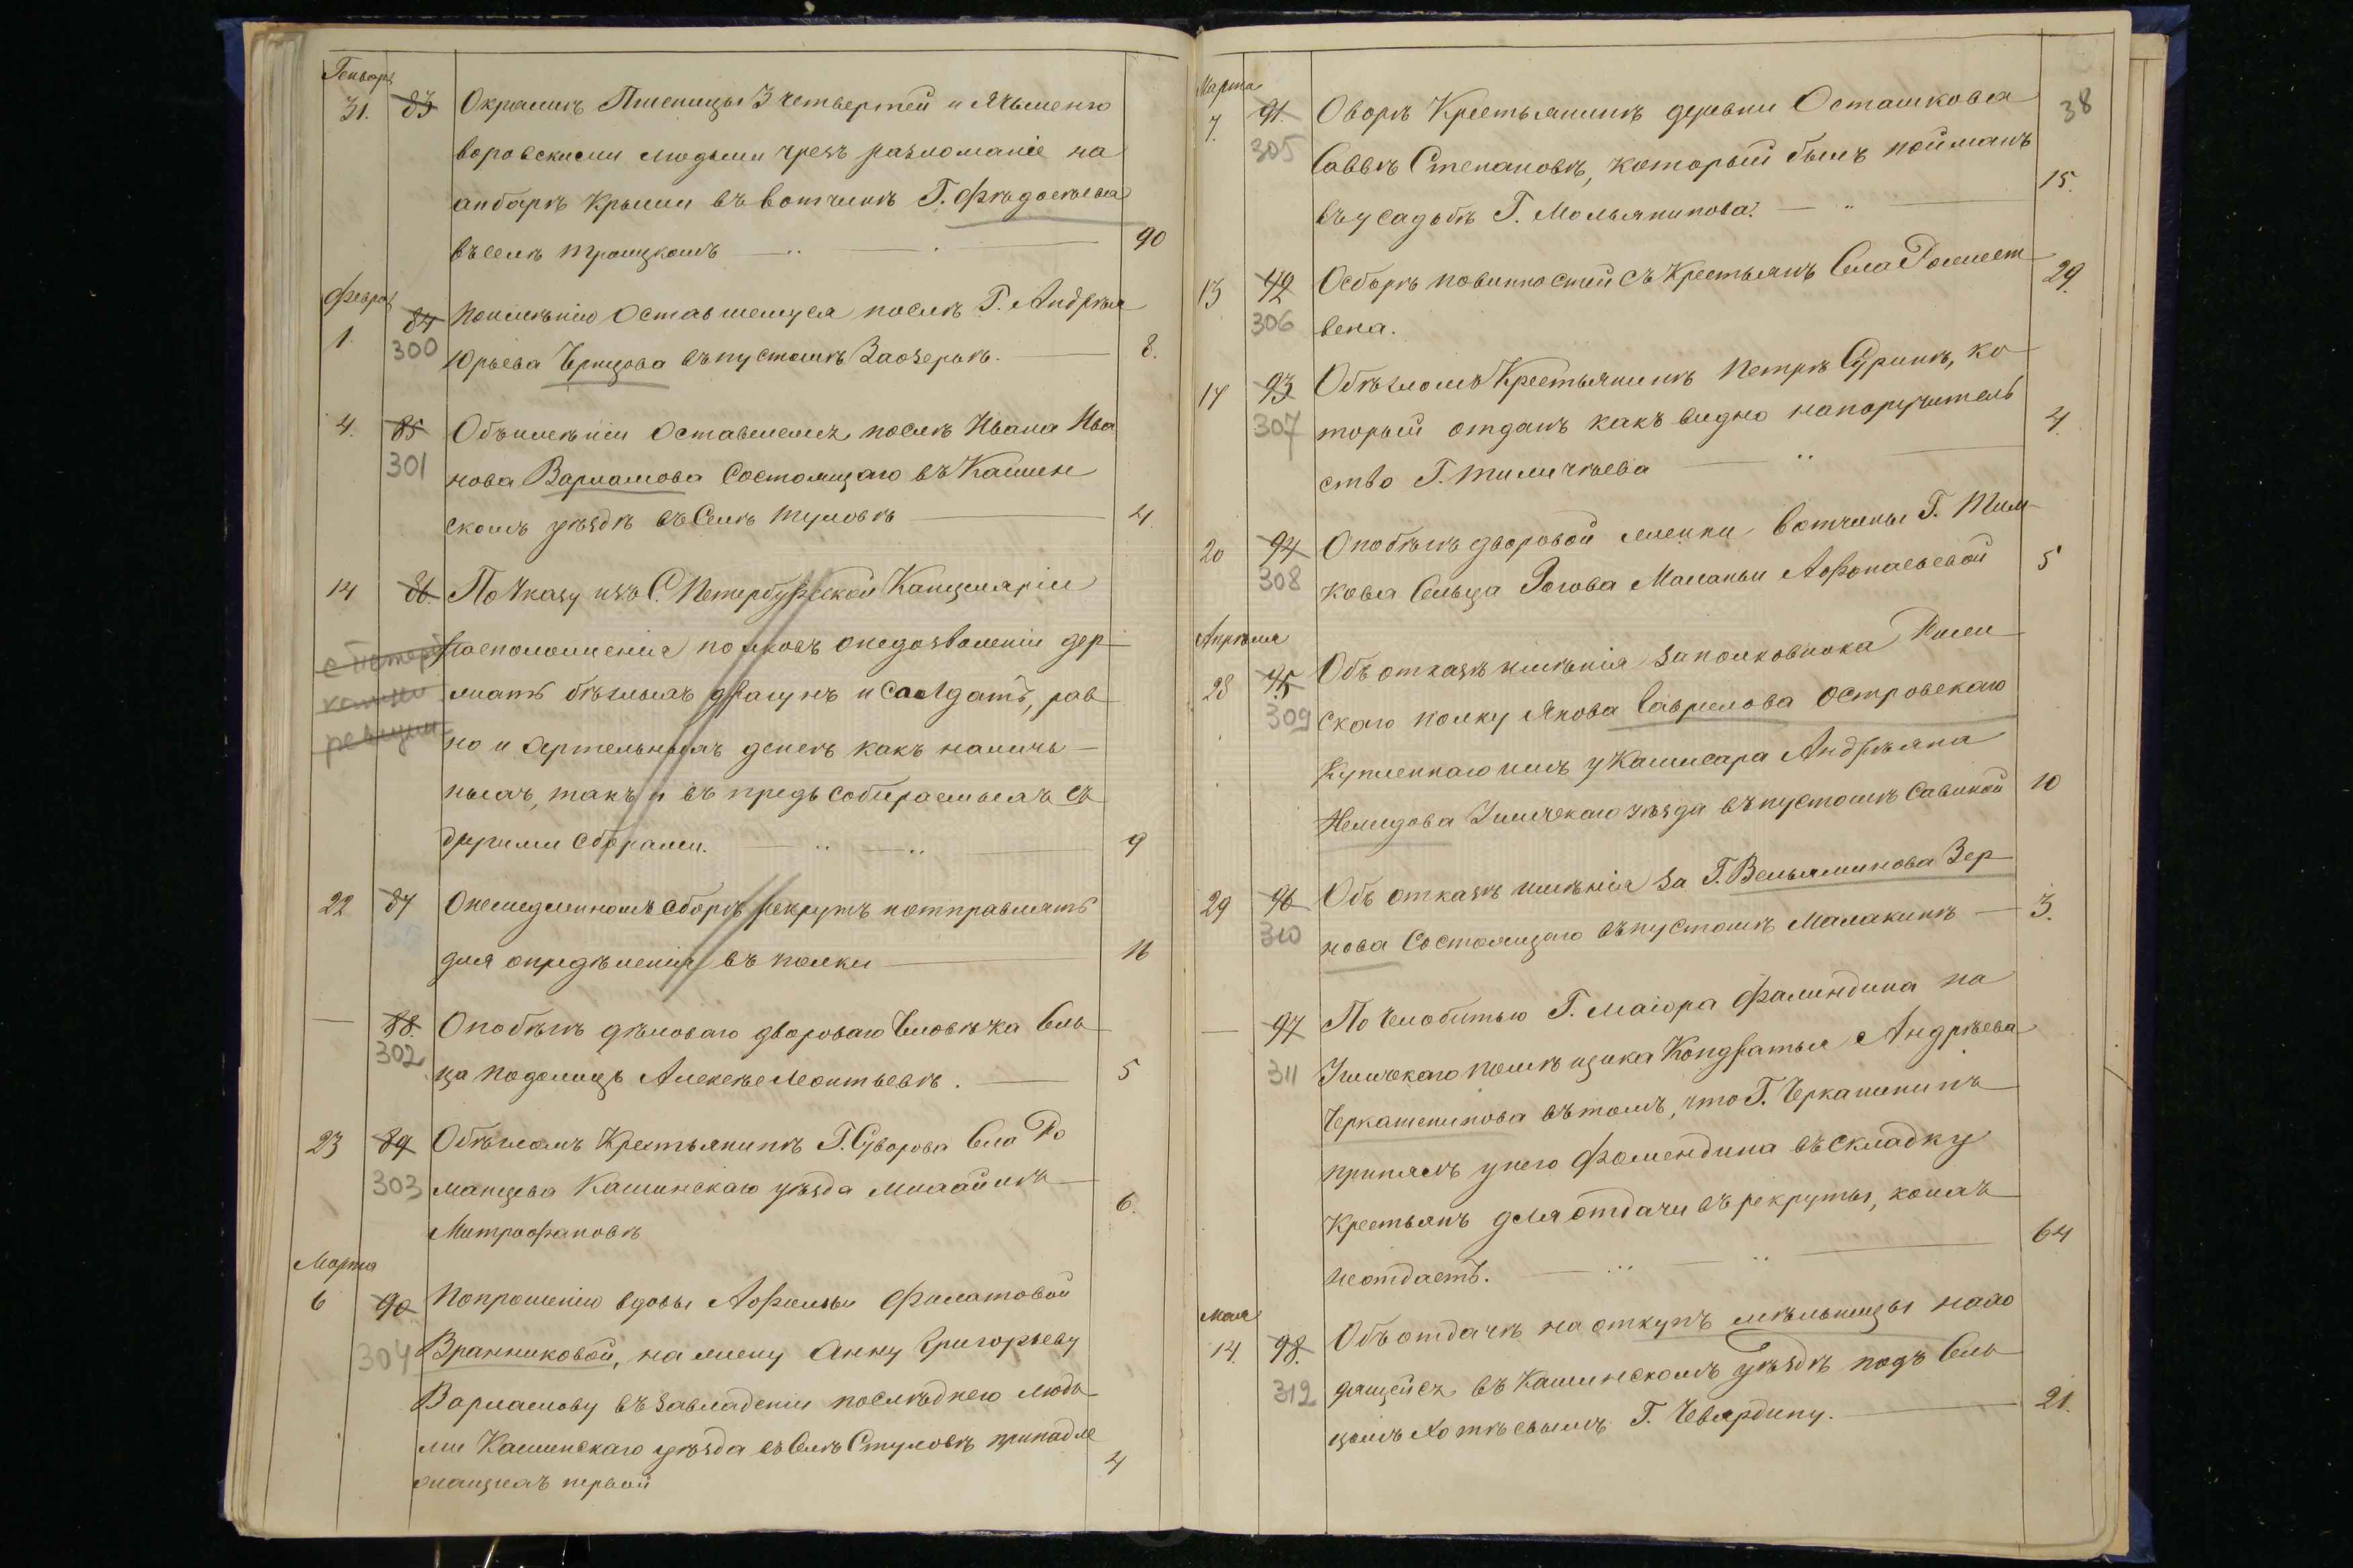 Генварь
31. 83 Окражѣ Пшеницы 3 четвертей и Ячьменю
воровскими людьми чрезъ разломаніе на
анбарѣ крыши въ вотчинѣ Г. Фѣдосѣева
въ селѣ Троицкомъ 90
Февра
1. 84 По имѣнію оставшемуся послѣ Г. Андрѣя
300 Юрьева Ерицова въ пустошѣ Заозерьѣ. 8.
4. 85 Объ имѣніи оставшемся послѣ Ивана Ива
301 нова Варламова состоящаго въ Кашин
скомъ уѣздѣ въ Селѣ Туловѣ 4
14 86. По Указу изъ С. Петербургской Канцеляріи
расположенія полковъ о недозволеніи дер
жать бѣглыхъ драгунъ и салдатъ, рав
но и артельныхъ денегъ какъ наличь
ныхъ, такъ и въ предь собираемыхъ съ
другими сборами. 9
22 87 О немедлинномъ сборѣ рекрутъ и отправлять
для опредѣленія въ полки 16
88. О побѣгѣ дѣловаго двороваго человѣка сель
302 ца Подолищъ Алексѣе Леонтьевѣ. 5
23 89 О бѣгломъ Крестьянинѣ Г. Суворова села Ро
303 манцева Кашинскаго уѣзда
Митрофановѣ 6.
Марта
6 90 По прошенію вдовы Афимьи Филатовой
304 Вранниковой, на жену Анну Григорьеву
Варламову въ завладеніи послѣднею людь
ми Кашинскаго уѣзда въ селѣ Стуловѣ принадле
жащихъ первой 4
38
Марта
7. 91. О ворѣ Крестьянинѣ деревни Осташкова
305 Саввѣ Степановѣ, который былъ пойманъ
въ усадьбѣ Г. Мольянинова. 15.
13 92 О сборѣ повинностей съ Крестьянъ Села Рожест
306 вена. 29.
17 93 О бѣгломъ Крестьянинѣ Петрѣ Суринѣ, ко
307 торый отданъ какъ видно на поручитель
ство Г. Тиличѣева 4.
20 94 О побѣгѣ дворовой женки вотчины Г. Тим
308 кова Сельца Рогова Маланьи Афонасьевой 5
Апрѣля
28 95 Объ отказѣ имѣнія за полковника
309 скаго полку Якова Гаврилова Островскаго
Купленнаго имъ у Камисара Андрѣяна
Немидова Углическаго уѣзда въ пустошѣ Савиной 10
29 96 Объ отказѣ имѣнія за Г. Вельяминова Зер
310 нова состоящаго въ пустошѣ Малакинѣ 3.
97 По челобитью Г. Маіора Фаминдина на
311 Углическаго помѣщика Кондратья Андрѣева
Черкашенинова въ томъ, что Г. Черкашенинъ
принялъ у него Фаминдина въ складку
крестьянъ для отдачи въ рекруты, коихъ
неотдаетъ. 64
Мая
14. 98. Объ отдачѣ на откупъ мѣльницы нахо
312 дящейся въ Кашинскомъ уѣздѣ подъ Сель
цомъ Хотѣевымъ Г. Чевардину. 21.